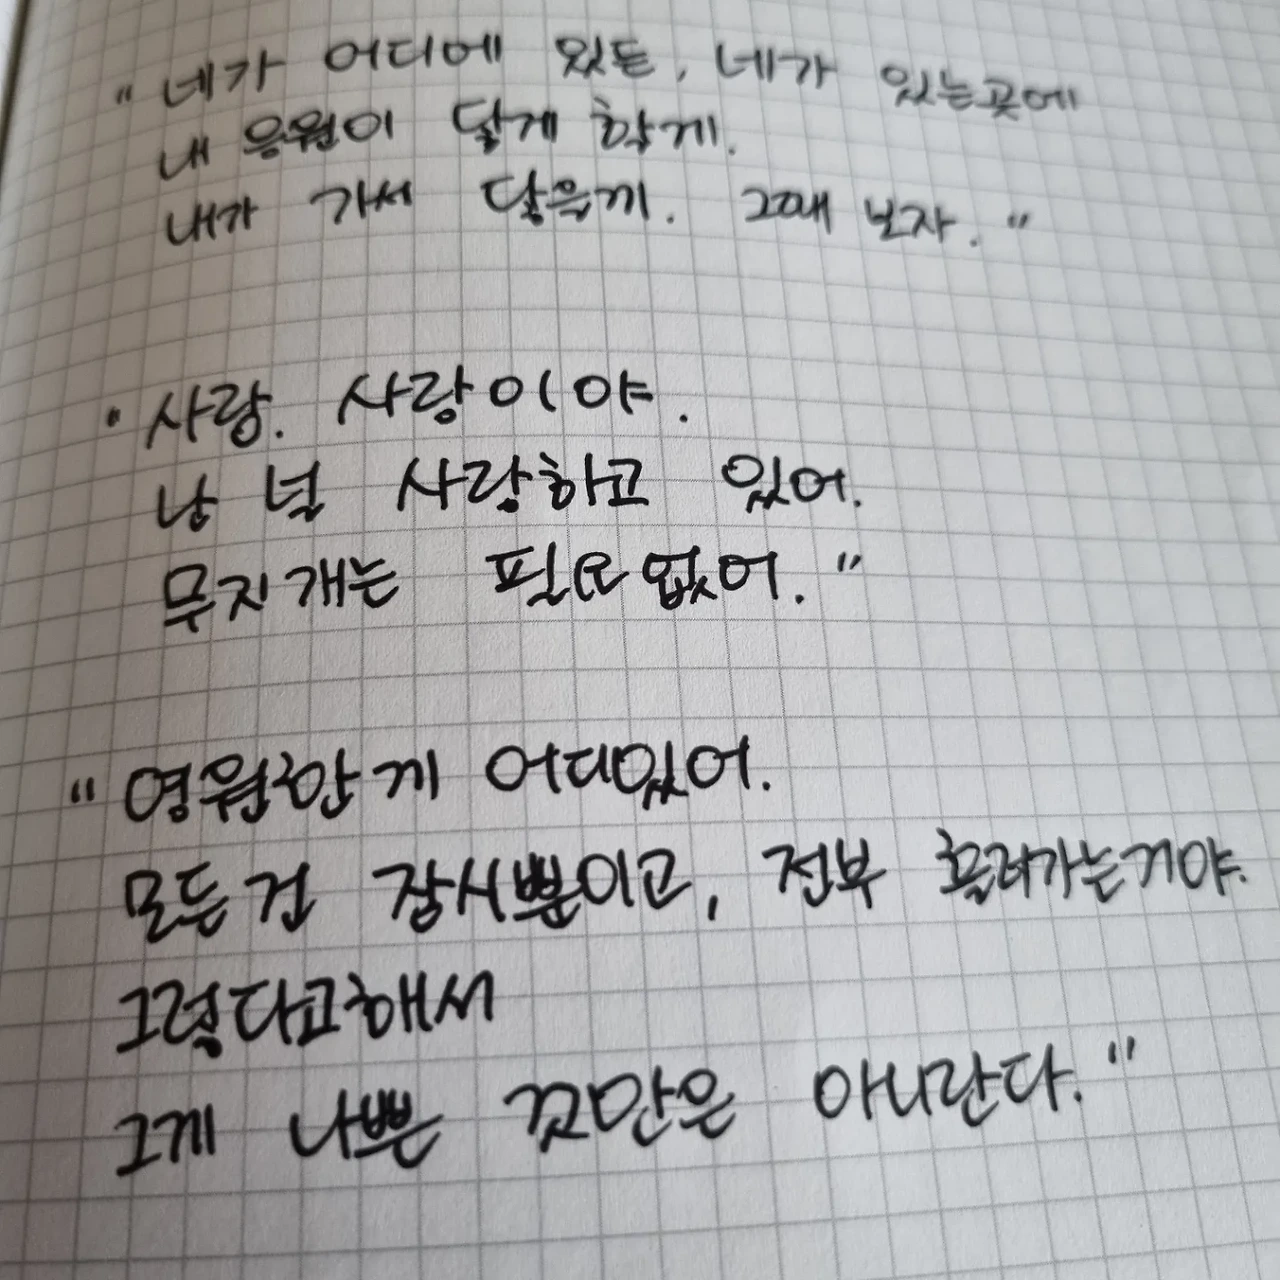 "네가 어디에 있든, 네가 있는곳에
내 응원이 닿게 할게.
내가 가서 닿을께. 그때 보자."
"사랑. 사랑이야.
난 널 사랑하고 있어.
무지개는 필요없어."
"영원한게 어디있어.
모든건 잠시뿐이고, 전부 흘러가는거야.
그렇다고해서
그게 나쁜 것만은 아니란다."